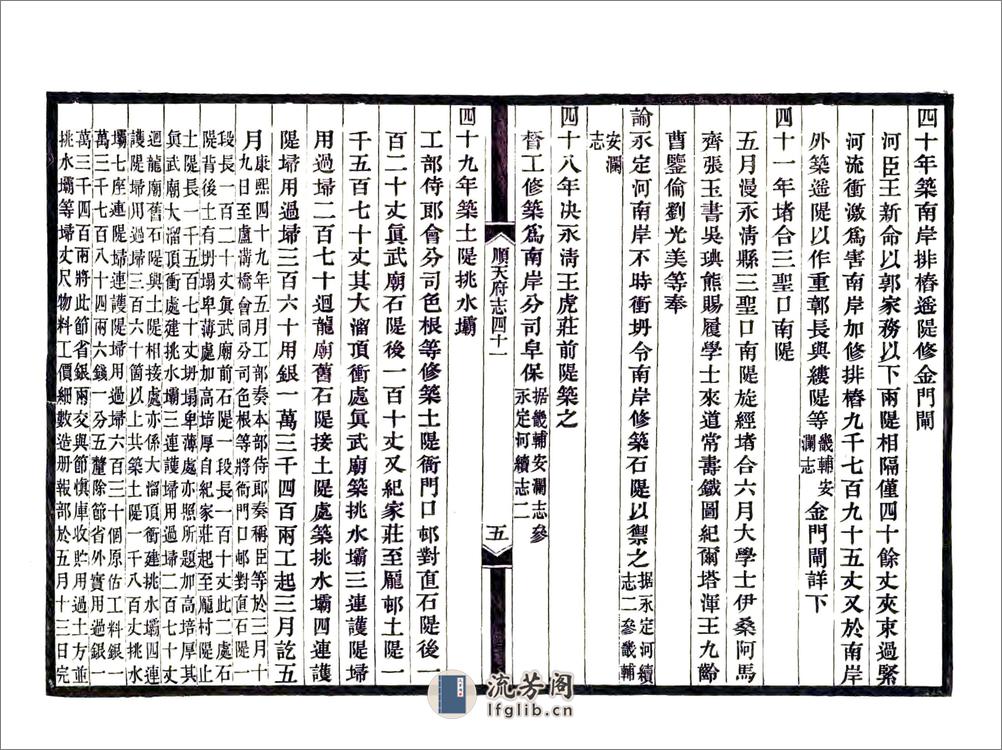 四十年築南岸排樁遥隄修金門閘
河臣王新命以郭家務以下兩隄相隔僅四十餘丈夾束過緊
河流衝激爲害南岸加修排樁九千七百九十五丈又於南岸
外築遥隄以作重鄣長與縷隄等畿輔安瀾志金門閘詳下
四十一年堵合三聖口南隄
五月漫永清縣三聖口南隄旋經堵合六月大學士伊桑阿馬
齊張玉書吳琠熊賜履學士來道常壽鐵圖紀爾塔渾王九齡
曹鑒倫劉光美等奉
諭永定河南岸不時衝坍令南岸修築石隄以禦之据永定河續志二參畿輔
安瀾志
四十八年決永清王虎莊前隄築之
督工修築爲南岸分司阜保据畿輔安瀾志參永定河續志二
順天府志四十一
五
四十九年築土隄挑水壩
工部侍郎會分司色根等修築土隄衙門口邨對直石隄後一
百二十丈眞武廟石隄後一百十丈又紀家莊至龐邨土隄一
千五百七十丈其大溜頂衝處眞武廟築挑水壩三連護隄埽
用過埽二百七十迴龍廟舊石隄接土隄處築挑水壩四連護
隄埽用過埽三百六十用銀一萬三千四百兩工起三月訖五
月康熙四十九年五月工部奏本部侍郎奏稱臣等於三月十
九日至盧溝橋會同分司色根等將衙門口邨對直石隄一
段長一百二十丈眞武廟前石隄一段長一百十丈此二處石
隄背後土有坍塌卑薄處加高培厚自紀家莊起至龐村隄止
土隄長一千五百七十丈坍塌卑薄處亦照所題加高培厚其
眞武廟大溜頂衝處建挑水壩三連護埽用過埽二百七十丈
迴龍廟舊石隄與土隄相接處亦係大溜頂衝建挑水壩四連
護隄埽用過埽三百六十箇以上共築土隄一千八百丈挑水
壩七座連隄埽連護隄埽用過埽六百三十個原估工料銀一
萬三千七百八十四兩六錢一分五釐除節省外實用過銀一
萬三千四百兩將此節省銀兩交與節愼庫收貯用過土方並
挑水壩等埽丈尺物料工價細數造册報部於五月十三日完
流芳阁
lfglib.cn